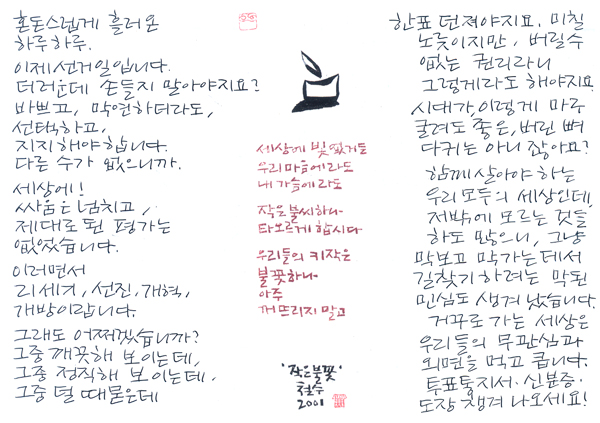 혼돈스럽게 흘러온
하루하루.
이제 선거일입니다.
더러운데 손들지 말아야지요?
바쁘고, 막연하더라도,
선택하고,
지지해야 합니다.
다른 수가 없으니까.
세상에!
싸움은 넘치고,
제대로 된 평가는
없었습니다.
이러면서
21세기, 선진, 개혁,
개방이랍니다.
그래도 어쩌겠습니까?
그중 깨끗해 보이는데,
그중 정직해 보이는데,
그중 덜 때묻은데
세상에 빛 없거든
우리 마음에라도
내 가슴에라도
작은 불씨 하나
타오르게 합시다
우리들의 키작은
불꽃 하나
아주
꺼뜨리지 말고
'작은 불꽃'
철수
2001
한표 던져야지요. 미칠
노릇이지만, 버릴수
없는 권리라니
그렇게라도 해야지요
시대가, 이렇게 마구
굴려도 좋은, 버린 뼈
다귀는 아니잖아요?
함께 살아야 하는
우리 모두의 세상인데,
저밖에 모르는 것들
하도 많으니, 그냥
막보고 막가는데서
길찾기 하려는 막된
민심도 생겨났습니다.
거꾸로 가는 세상은
우리들의 무관심과
외면을 먹고 큽니다.
투표통지서·신분증·
도장 챙겨 나오세요!